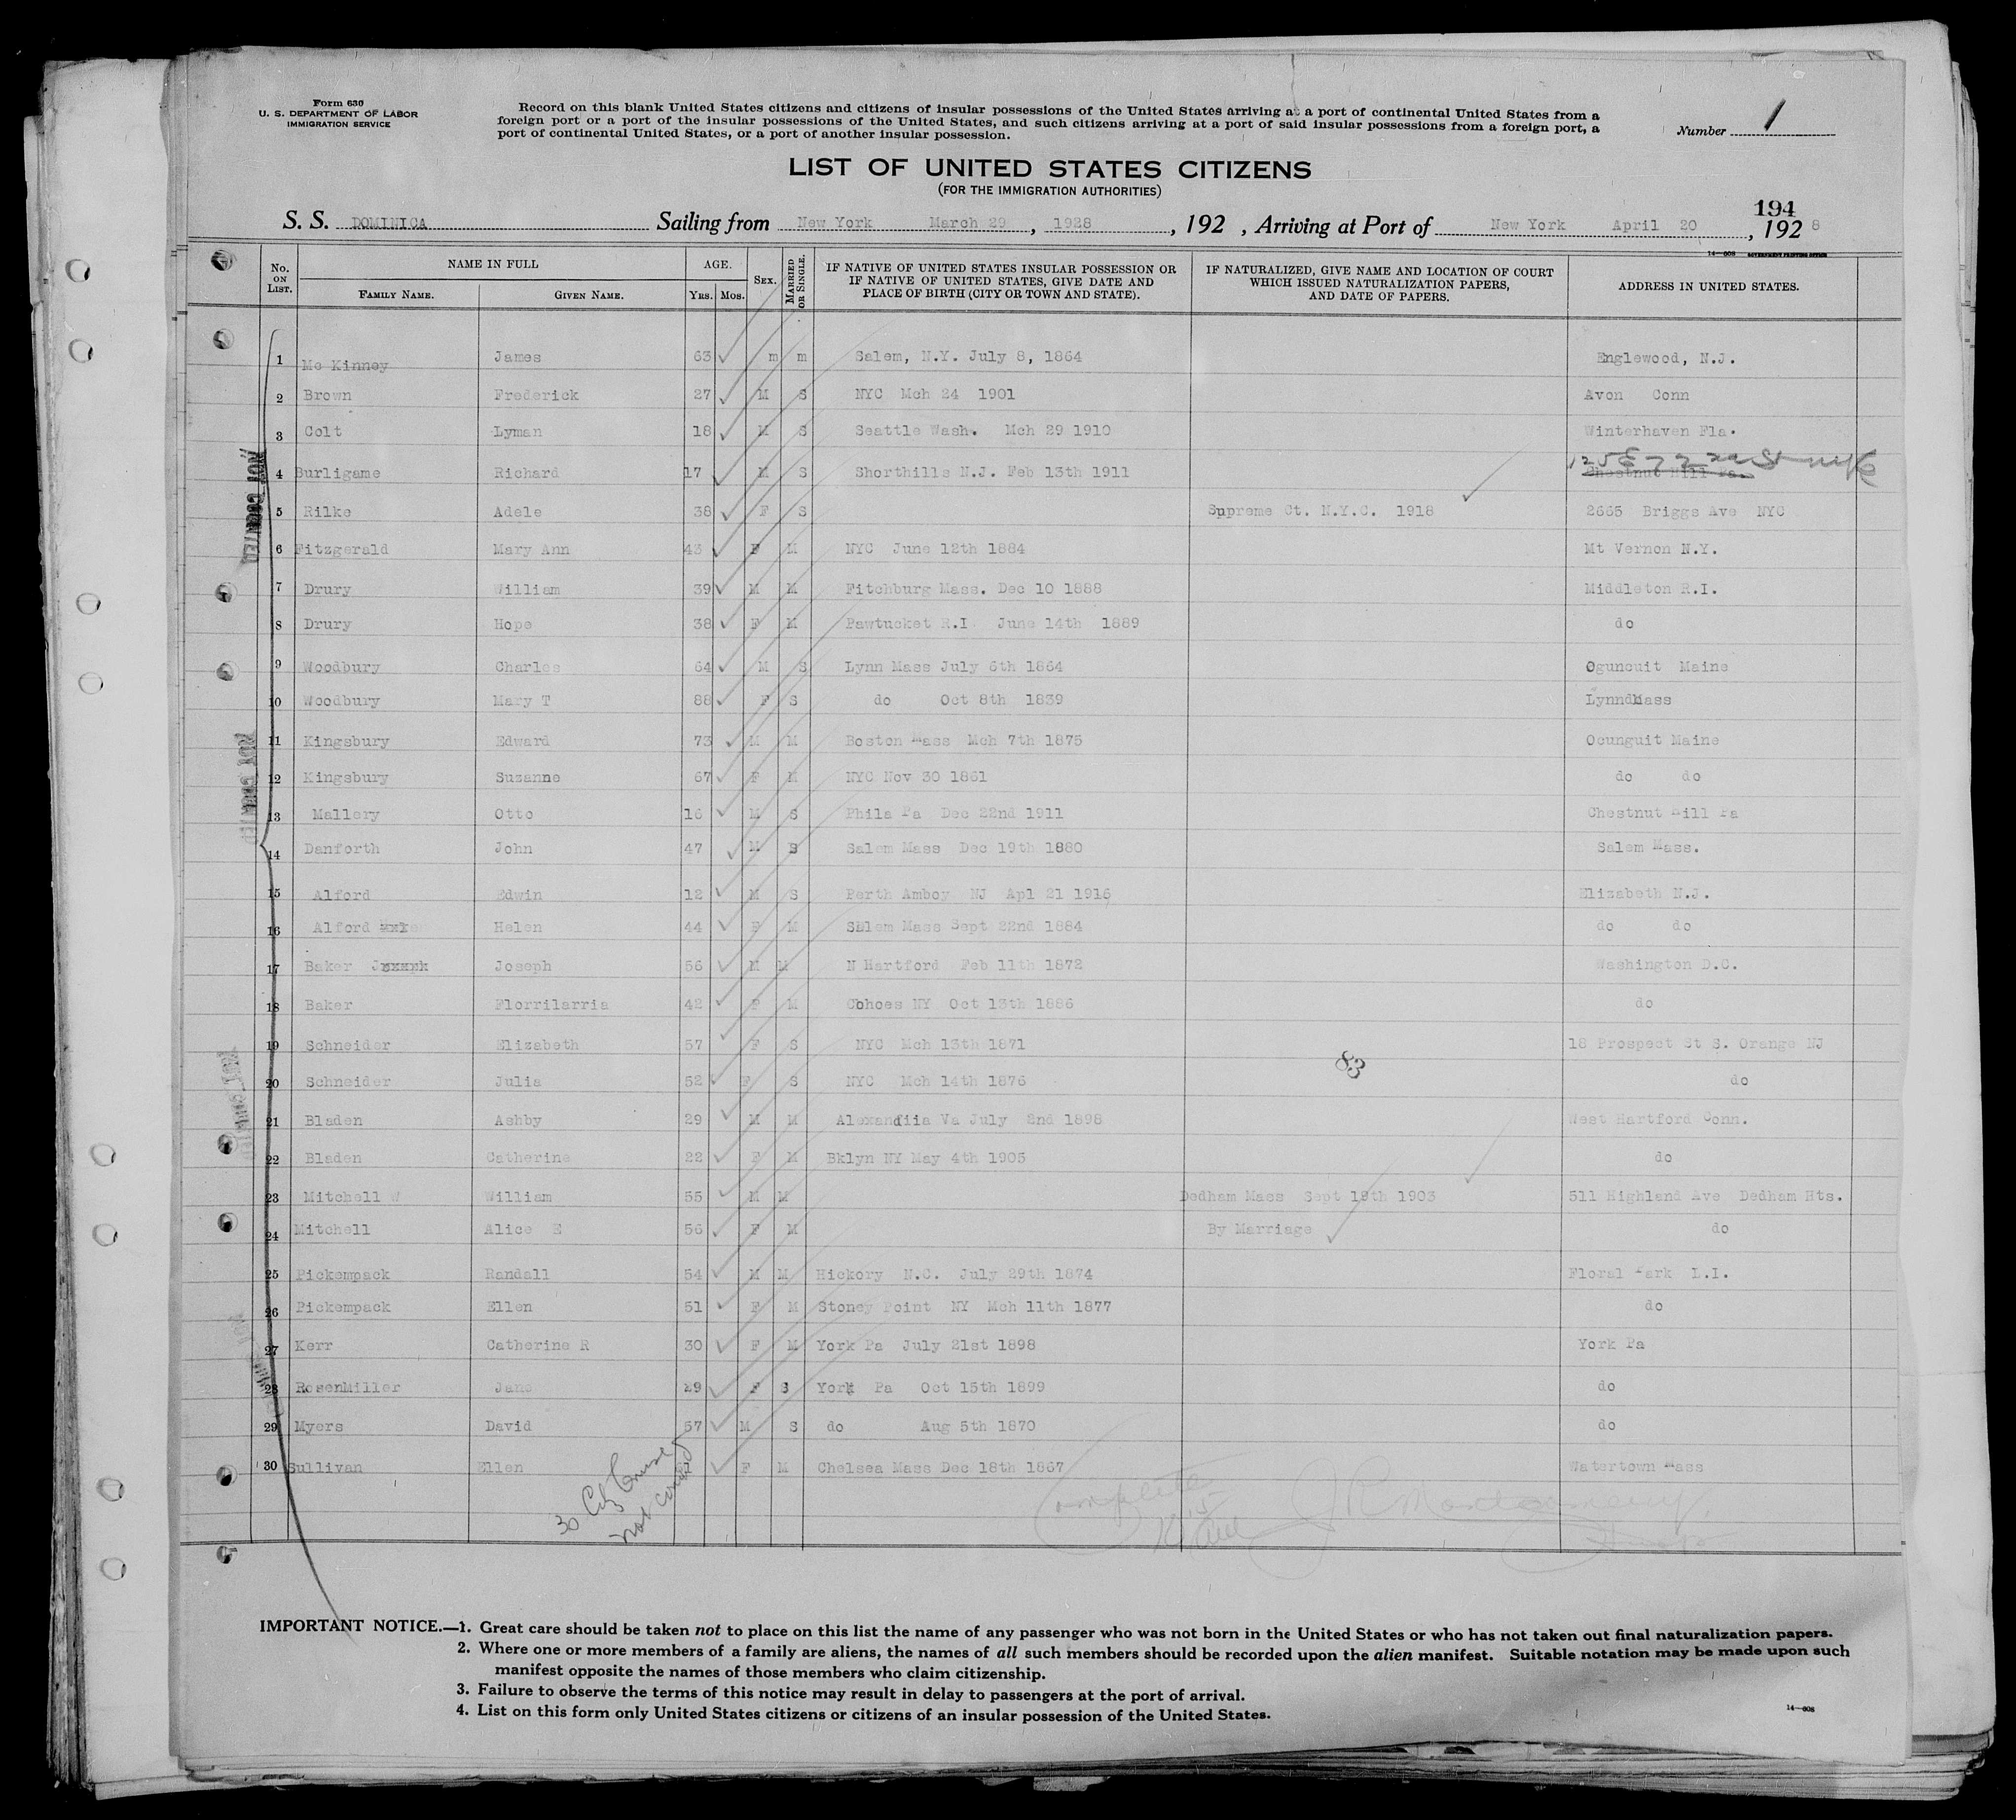 Form 630
U. S. DEPARTMENT OF LABOR
IMMIGRATION SERVICE
Record on this blank United States citizens and citizens of insular possessions of the United States arriving at a port of continental United States from a
foreign port or a port of the insular possessions of the United States, and such citizens arriving at a port of said insular possessions from a foreign port, a
port of continental United States, or a port of another insular possession.
Number 1
LIST OF UNITED STATES CITIZENS
(FOR THE IMMIGRATION AUTHORITIES)
194
S. S. DOMINICA Sailing from New York March 29, 1928, 192 , Arriving at Port of New York April 20, 192 8
14—608 GOVERNMENT PRINTING OFFICE
No. ON LIST. NAME IN FULL FAMILY NAME. GIVEN NAME. AGE. YRS. MOS. SEX. MARRIED OR SINGLE. IF NATIVE OF UNITED STATES INSULAR POSSESSION OR IF NATIVE OF UNITED STATES, GIVE DATE AND PLACE OF BIRTH (CITY OR TOWN AND STATE). IF NATURALIZED, GIVE NAME AND LOCATION OF COURT WHICH ISSUED NATURALIZATION PAPERS, AND DATE OF PAPERS. ADDRESS IN UNITED STATES.
1 Mc Kinney James 63 m m Salem, N.Y. July 8, 1864 Englewood, N.J.
2 Brown Frederick 27 M S NYC Mch 24 1901 Avon Conn
3 Colt Lyman 18 M S Seattle Wash. Mch 29 1910 Winterhaven Fla.
125 E 72nd St NYC
4 Burligame Richard 17 M S Shorthills N.J. Feb 13th 1911 Chestnut Hill Pa.
5 Rilke Adele 38 F S Supreme Ct. N.Y.C. 1918 2665 Briggs Ave NYC
6 Fitzgerald Mary Ann 43 F M NYC June 12th 1884 Mt Vernon N.Y.
7 Drury William 39 M M Fitchburg Mass. Dec 10 1888 Middleton R.I.
8 Drury Hope 38 F M Pawtucket R.I. June 14th 1889 do
9 Woodbury Charles 64 M S Lynn Mass July 6th 1864 Oguncuit Maine
10 Woodbury Mary T 88 F S do Oct 8th 1839 Lynn Mass
11 Kingsbury Edward 73 M M Boston Mass Mch 7th 1875 Ocunguit Maine
12 Kingsbury Suzanne 67 F M NYC Nov 30 1861 do do
13 Mallery Otto 16 M S Phila Pa Dec 22nd 1911 Chestnut Hill Pa
14 Danforth John 47 M S Salem Mass Dec 19th 1880 Salem Mass.
15 Alford Edwin 12 M S Perth Amboy NJ Apl 21 1916 Elizabeth N.J.
16 Alford Helen 44 F M Salem Mass Sept 22nd 1884 do do
17 Baker Joseph 56 M M N Hartford Feb 11th 1872 Washington D.C.
18 Baker Florrilarria 42 F M Cohoes NY Oct 13th 1886 do
19 Schneider Elizabeth 57 F S NYC Mch 13th 1871 18 Prospect St S. Orange NJ
83
20 Schneider Julia 52 F S NYC Mch 14th 1876 do
21 Bladen Ashby 29 M M Alexandiia Va July 2nd 1898 West Hartford Conn.
22 Bladen Catherine 22 F M Bklyn NY May 4th 1905 do
23 Mitchell W William 55 M M Dedham Mass Sept 19th 1903 511 Highland Ave Dedham Hts.
24 Mitchell Alice E 56 F M By Marriage do
25 Pickempack Randall 54 M M Hickory N.C. July 29th 1874 Floral Park L.I.
26 Pickempack Ellen 51 F M Stoney Point NY Mch 11th 1877 do
27 Kerr Catherine R 30 F M York Pa July 21st 1898 York Pa
28 RosenMiller Jane 29 F S York Pa Oct 15th 1899 do
29 Myers David 57 M S do Aug 5th 1870 do
30 Sullivan Ellen F M Chelsea Mass Dec 18th 1867 Watertown Mass
30 Cits Cruise
not counted
NOT COUNTED
NOT COUNTED
NOT COUNTED
IMPORTANT NOTICE.—1. Great care should be taken not to place on this list the name of any passenger who was not born in the United States or who has not taken out final naturalization papers.
2. Where one or more members of a family are aliens, the names of all such members should be recorded upon the alien manifest. Suitable notation may be made upon such
manifest opposite the names of those members who claim citizenship.
3. Failure to observe the terms of this notice may result in delay to passengers at the port of arrival.
4. List on this form only United States citizens or citizens of an insular possession of the United States.
14—608